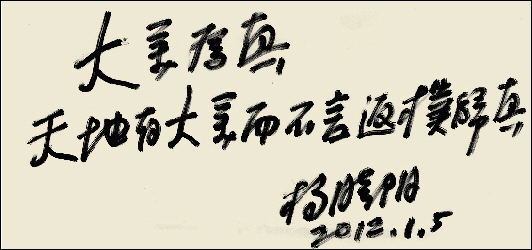 大美為真
天地有大美而不言返樸歸真
杨晓阳
2012.1.5